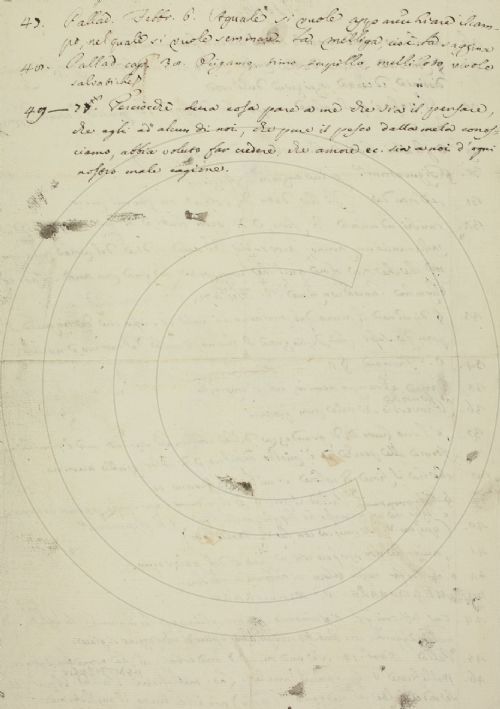 47. Pallad. Febbr. 6. Aguale si vuole apparecchiare il cam-
po, nel quale si vuole seminare la melliga, cioè la saggina
48. Pallad. cap. 32. Pugamo, timo, serpillo, melliloto, vivole
salvatiche
49 — Perciocchè dura cosa pare a me che sia il pensare,
che egli ad alcun di noi, che pure il pesco dalla mela conos-
ciamo, abbia voluto far credere, che amore ec. sia a noi d'ogni
nostro male cagione.